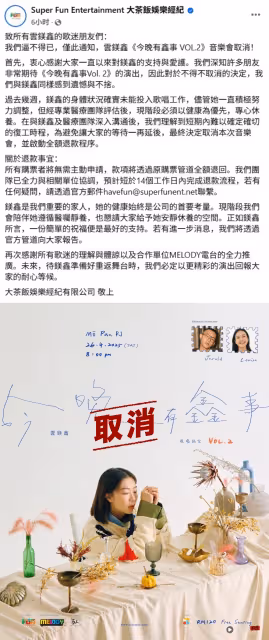 Super Fun Entertainment 大茶飯娛樂經紀
6小時
致所有雲鎂鑫的歌迷朋友們:
我們逼不得已,僅此通知,雲鎂鑫《今晚有鑫事 VOL.2》音樂會取消!
首先,衷心感謝大家一直以來對鎂鑫的支持與愛護。我們深知許多朋友
非常期待《今晚有鑫事Vol. 2》的演出,因此對於不得不取消的決定,我
們與鎂鑫同樣感到遺憾與不捨。
過去幾週,鎂鑫的身體狀況確實未能投入歌唱工作,儘管她一直積極努
力調整,但經專業醫療團隊評估後,現階段必須以健康為優先,專心休
養。在與鎂鑫及醫療團隊深入溝通後,我們理解到短期內難以確定確切
的復工時程,為避免讓大家的等待一再延後,最終決定取消本次音樂
會,並啟動全額退款程序。
關於退款事宜:
所有購票者將無需主動申請,款項將透過原購票管道全額退回。我們團
隊已全力與相關單位協調,預計短於14個工作日內完成退款流程,若有
任何疑問,請透過官方郵件havefun@superfunent.net聯繫。
鎂鑫是我們重要的家人,她的健康始終是公司的首要考量。現階段我們
會陪伴她遵循醫囑靜養,也懇請大家給予她安靜休養的空間。正如鎂鑫
所言,一份簡單的祝福便是最好的支持。若有進一步消息,我們將透過
官方管道向大家報告。
再次感謝所有歌迷的理解與體諒以及合作單位MELODY電台的全力推
廣。未來,待鎂鑫準備好重返舞台時,我們必定以更精彩的演出回報大
家的耐心等候。
大茶飯娛樂經紀有限公司 敬上
26.4.2025
8:00 pm
今晚有鑫事
取消
VOL.2
MELODY
RM120 Free Seating